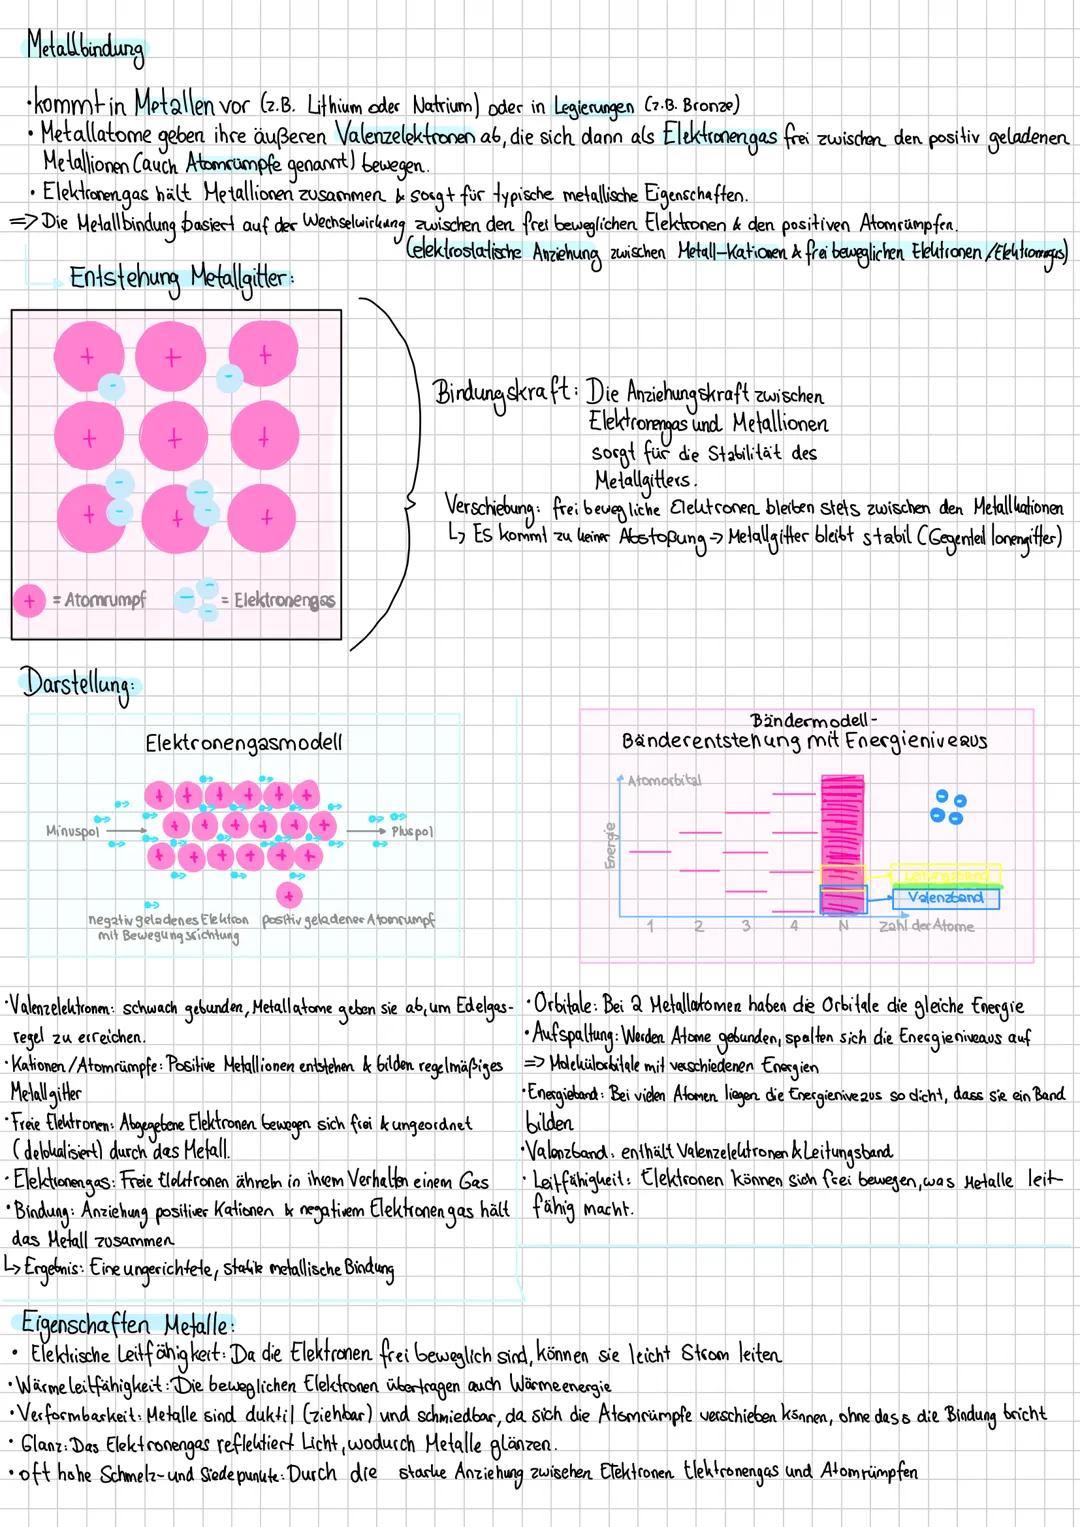 Metallbindung
·kommt in Metallen vor (z.B. Lithium oder Natrium) oder in Legierungen (z.B. Bronze)
· Metallatome geben ihre äußeren Valenzelektronen ab, die sich dann als Elektronengas frei zwischen den positiv geladenen
Metallionen (auch Atomrümpfe genannt) bewegen.
· Elektronengas hält Metallionen zusammen & sorgt für typische metallische Eigenschaften.
=> Die Metallbindung basiert auf der Wechselwirkung zwischen den frei beweglichen Elektronen & den positiven Atomrümpfen.
(elektrostatische Anziehung zwischen Metall-Kationen & frei beweglichen Elektronen /Elektronengas)
Entstehung Metallgitter:
+ + +
- -
+ + +
- -
+ - + - +
+ = Atomrumpf - - - = Elektronengas
Bindungskraft: Die Anziehungskraft zwischen
Elektronengas und Metallionen
sorgt für die Stabilität des
Metallgitters.
Verschiebung: frei bewegliche Elektronen bleiben stets zwischen den Metallkationen
↳ Es kommt zu keiner Abstoßung → Metallgitter bleibt stabil (Gegenteil Ionengitter)
Darstellung:
Elektronengasmodell
+ + + + + +
Minuspol → + + + + + + → Pluspol
+ + + + + +
+
negativ geladenes Elektron positiv geladener Atomrumpf
mit Bewegungsrichtung
Bändermodell-
Bänderentstehung mit Energieniveaus
Atomorbital
Energie
Leitungsband
Valenzband
1 2 3 4 N Zahl der Atome
·Valenzelektronen: schwach gebunden, Metallatome geben sie ab, um Edelgas-
regel zu erreichen.
·Kationen/Atomrümpfe: Positive Metallionen entstehen & bilden regelmäßiges
Metallgitter
·Freie Elektronen: Abgegebene Elektronen bewegen sich frei & ungeordnet
(delokalisiert) durch das Metall.
·Elektronengas: Freie Elektronen ähneln in ihrem Verhalten einem Gas
·Bindung: Anziehung positiver Kationen & negativem Elektronengas hält
das Metall zusammen
↳ Ergebnis: Eine ungerichtete, starke metallische Bindung
·Orbitale: Bei 2 Metallatomen haben die Orbitale die gleiche Energie
·Aufspaltung: Werden Atome gebunden, spalten sich die Energieniveaus auf
=> Molekülorbitale mit verschiedenen Energien
·Energieband: Bei vielen Atomen liegen die Energieniveaus so dicht, dass sie ein Band
bilden
·Valenzband: enthält Valenzelektronen & Leitungsband
· Leitfähigkeit: Elektronen können sich frei bewegen, was Metalle leit-
fähig macht.
Eigenschaften Metalle:
· Elektrische Leitfähigkeit: Da die Elektronen frei beweglich sind, können sie leicht Strom leiten
·Wärmeleitfähigkeit: Die beweglichen Elektronen übertragen auch Wärmeenergie
·Verformbarkeit: Metalle sind duktil (ziehbar) und schmiedbar, da sich die Atomrümpfe verschieben können, ohne dass die Bindung bricht
· Glanz: Das Elektronengas reflektiert Licht, wodurch Metalle glänzen.
· oft hohe Schmelz- und Siedepunkte: Durch die starke Anziehung zwischen Elektronen Elektronengas und Atomrümpfen